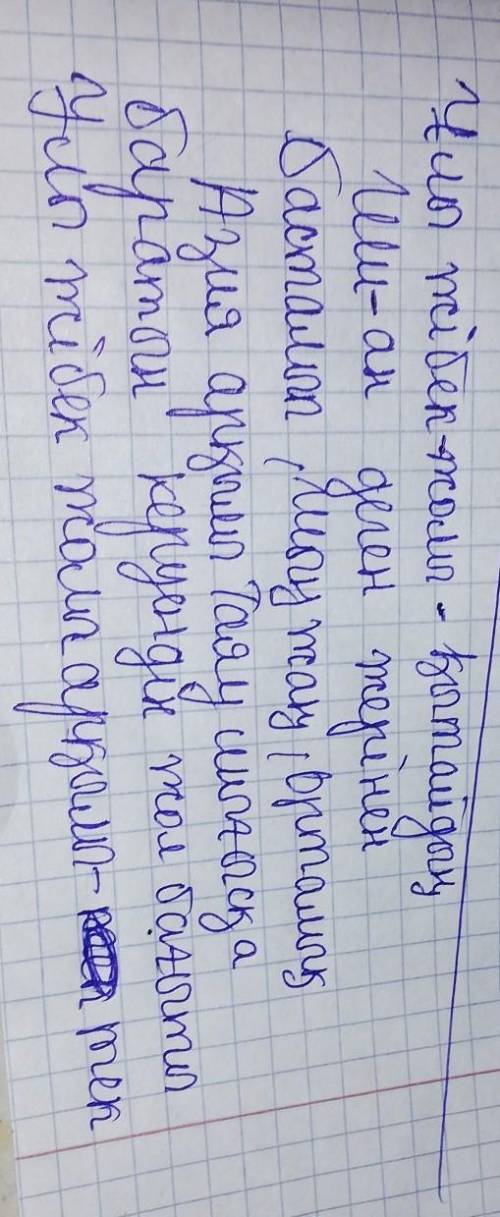 Ұлы жібек-жолы - қытайдың
Ши-ан деген жерінен
басталып, Шыңжаң, Орталық
Азия арқылы Таяу шығысқа
баратын керуендік жол бағыты
Ұлы жібек жолы арқылы- тек